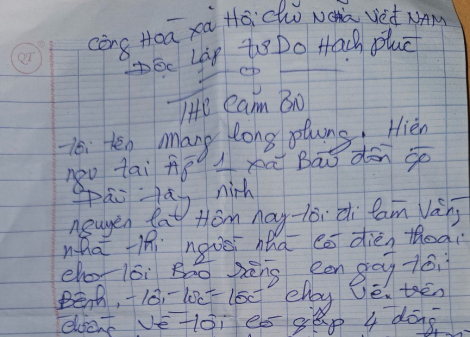 Công Hoà xã Hội chủ Nghĩa Việt NAM
Độc Lập Tự Do Hạch phúc
THƯ Cảm ƠN
Tôi tên Mang long phụng. Hiện
ngụ tại Ấp 1 xã Bàu đồn gò
Dầu tây ninh
nguyên lai Hôm nay tôi đi làm Vắng
nhà thì người nhà có điện thoại
cho tôi Báo rằng con gáy tôi
Bệnh, tôi tốc tốc chạy Về. trên
đường Về tôi có gặp 4 đồng